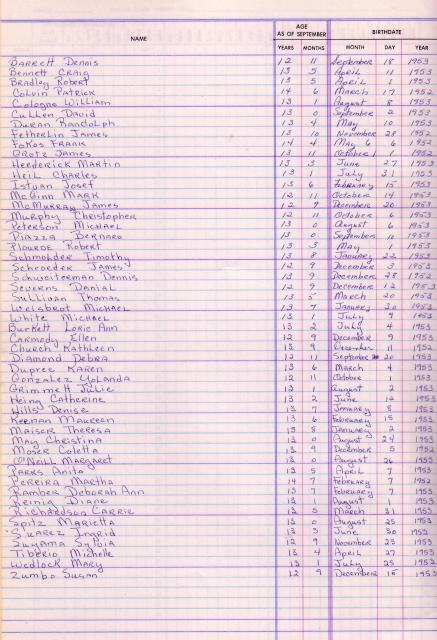 NAME AGE AS OF SEPTEMBER BIRTHDATE
YEARS MONTHS MONTH DAY YEAR
Barrett Dennis 12 11 September 18 1953
Bennett Craig 13 5 April 11 1953
Bradley Robert 13 5 April 1 1953
Colvin Patrick 14 6 March 17 1952
Cologne William 13 1 August 8 1953
Cullen David 13 0 September 2 1953
Duran Randolph 13 4 May 10 1953
Fetherlin James 13 10 November 28 1952
Fokos Frank 14 4 May 6 1952
Grotz James 13 11 October 1 1952
Heederick Martin 13 3 June 27 1953
Heil Charles 13 1 July 31 1953
Istvan Josef 13 6 February 15 1953
McGinn Mark 12 11 October 14 1953
McMurray James 12 9 December 20 1953
Murphy Christopher 12 11 October 6 1953
Peterson Michael 13 0 August 6 1953
Piazza Bernard 13 0 September 11 1953
Plourde Robert 13 3 May 1 1953
Schmolder Timothy 13 8 January 22 1953
Schroeder James 12 9 December 3 1953
Schweiterman Dennis 13 9 December 28 1952
Severns Danial 12 9 December 12 1953
Sullivan Thomas 13 5 March 20 1953
Weisbrot Michael 13 7 January 30 1953
White Michael 13 1 July 9 1953
Burkett Lorie Ann 13 2 July 4 1953
Carmody Ellen 12 9 December 9 1953
Church Kathleen 13 9 December 11 1952
Diamond Debra 12 11 September 20 1953
Dupree Karen 13 6 March 4 1953
Gonzalez Yolanda 12 11 October 1 1953
Grimmett Julie 13 1 August 2 1953
Heing Catherine 13 2 June 12 1953
Hills Denise 13 7 January 8 1953
Keenan Maureen 13 6 February 15 1953
Maiser Theresa 13 8 January 2 1953
May Christina 13 0 August 24 1953
Moser Coletta 13 9 December 5 1952
O'Neill Margaret 13 0 August 26 1953
Parks Anita 13 5 April 7 1953
Perreira Martha 14 7 February 7 1952
Rambes Deborah Ann 13 7 February 7 1953
Reinig Diane 13 1 August 1 1953
Richardson Carrie 13 5 March 31 1953
Spitz Marietta 13 0 August 25 1953
Suarez Ingrid 13 3 June 30 1953
Suyama Sylvia 12 9 November 23 1953
Tiberio Michelle 13 4 April 27 1953
Wedlock Mary 13 1 July 25 1953
Zumbo Susan 12 9 December 15 1953